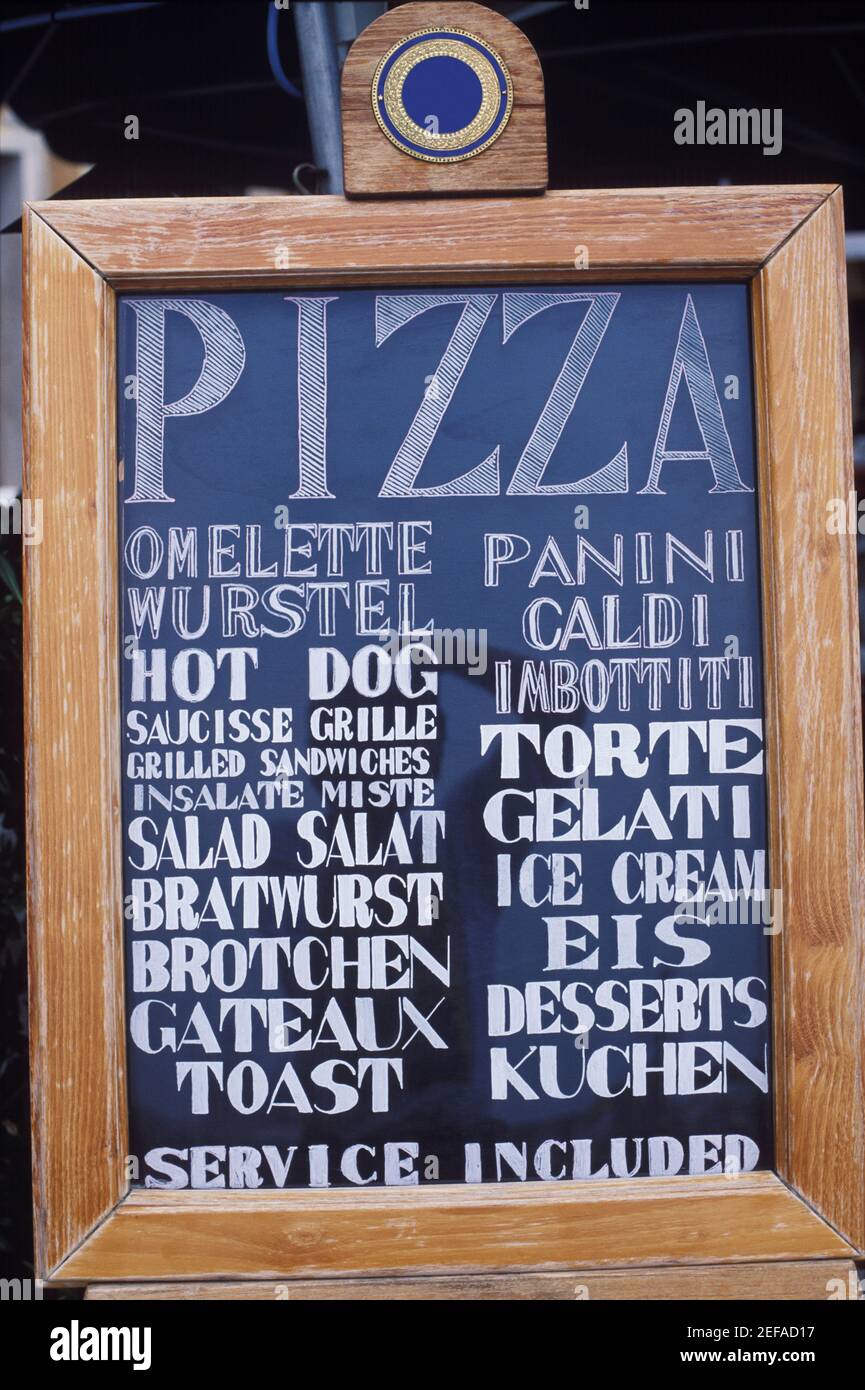 PIZZA
OMELETTE
WURSTEL
HOT DOG
SAUCISSE GRILLE
GRILLED SANDWICHES
INSALATE MISTE
SALAD SALAT
BRATWURST
BROTCHEN
GATEAUX
TOAST
PANINI
CALDI
IMBOTTITI
TORTE
GELATI
ICE CREAM
EIS
DESSERTS
KUCHEN
SERVICE INCLUDED
a
alamy
a
alamy
Image ID: 2EFAD17
www.alamy.com